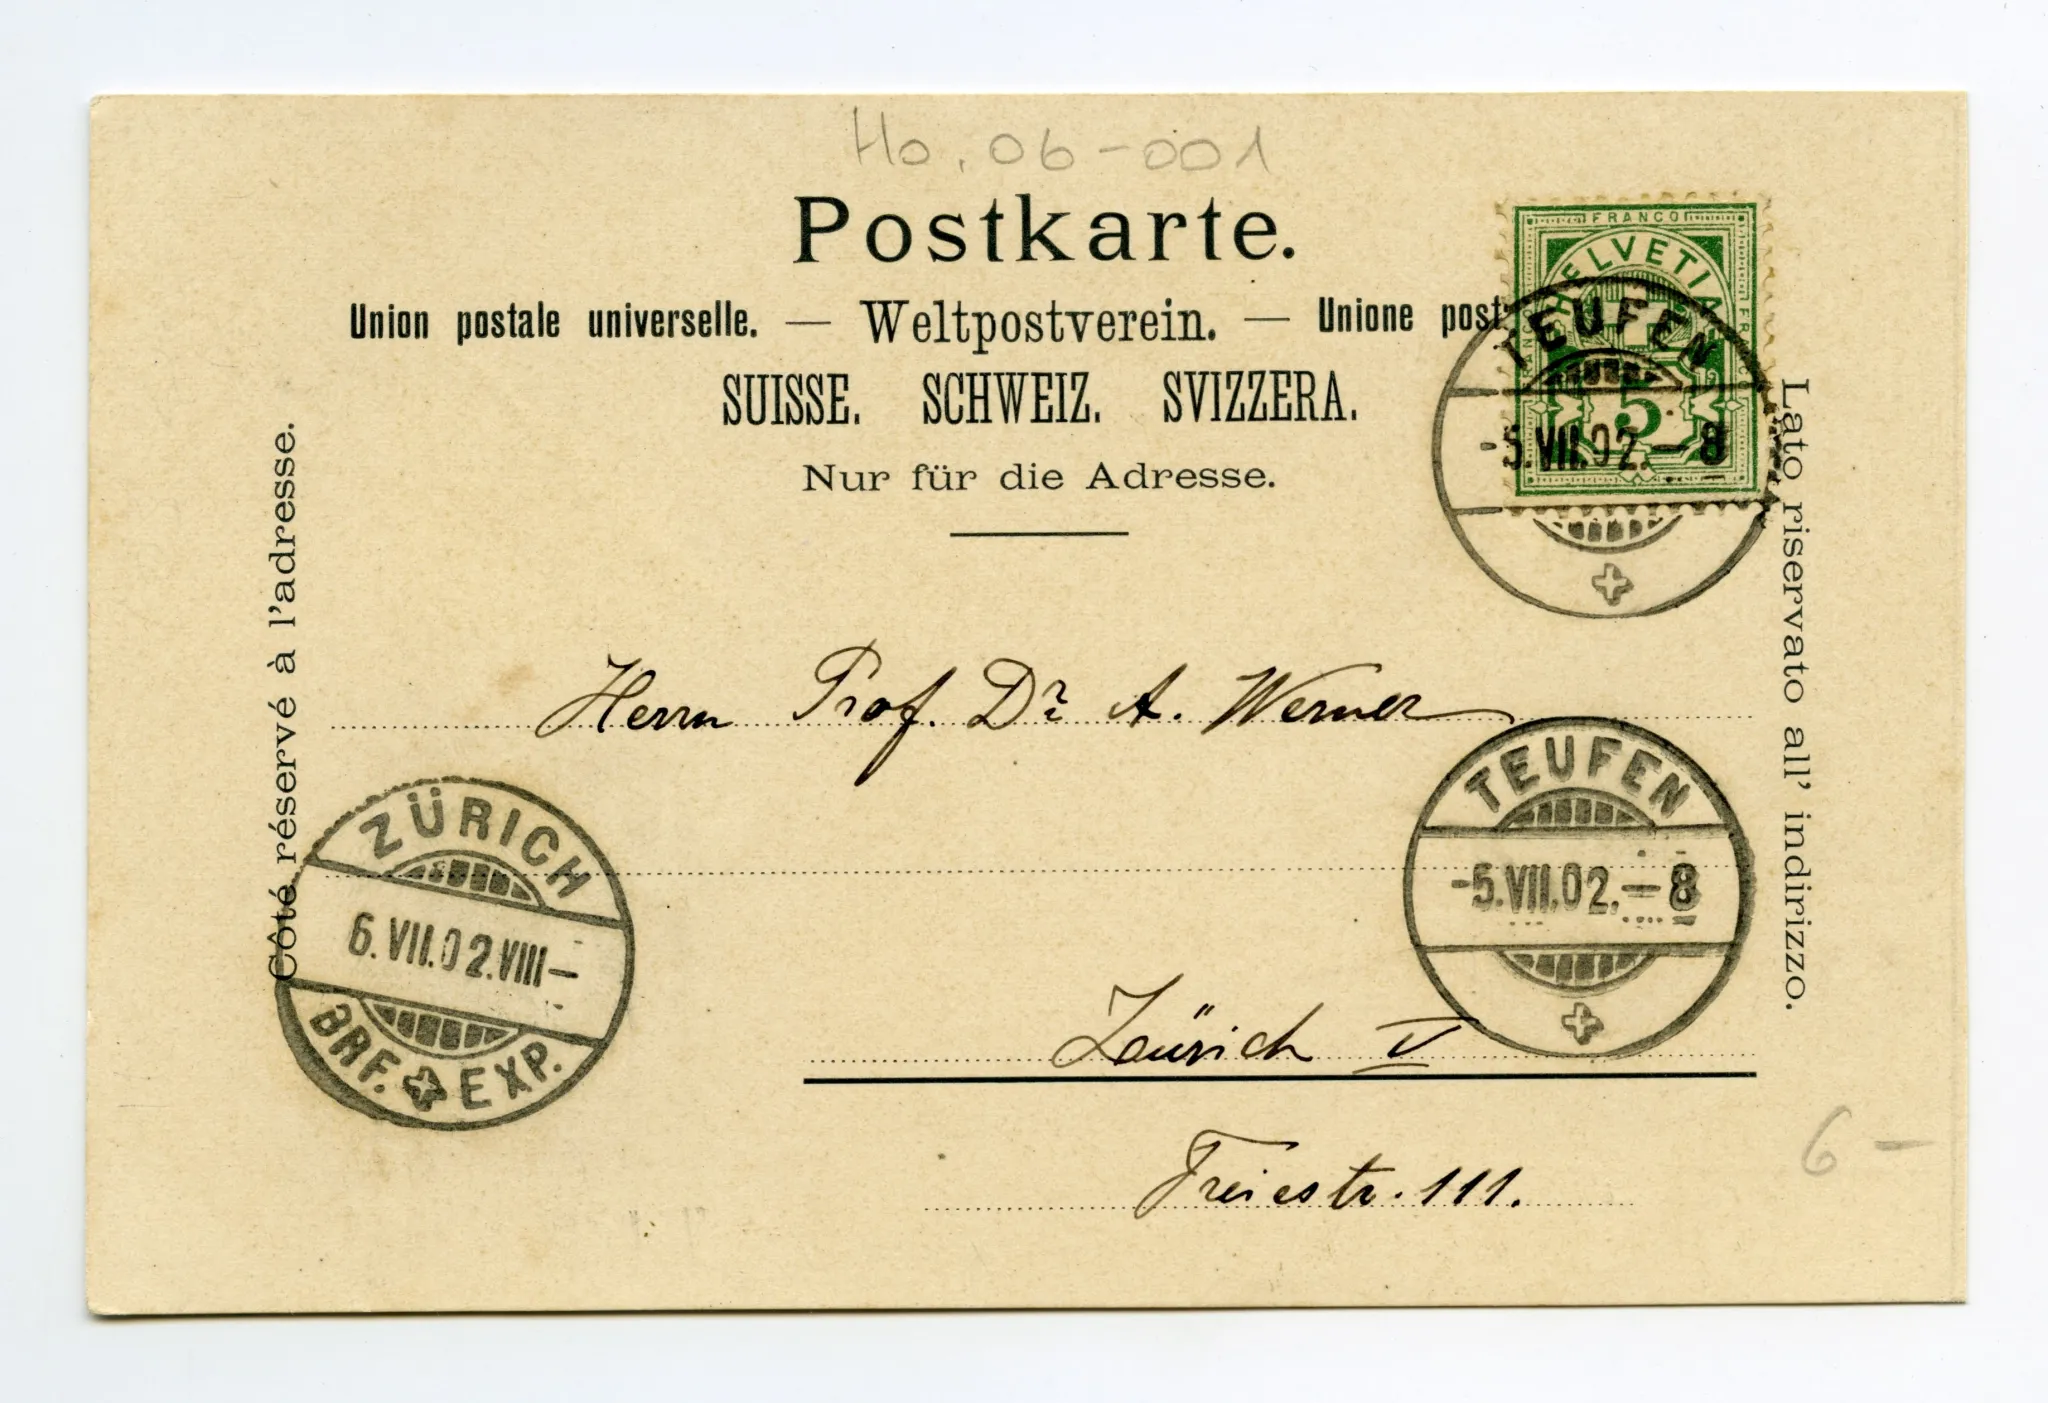 Ho. 06-001
Postkarte.
Union postale universelle. — Weltpostverein. — Unione post
SUISSE. SCHWEIZ. SVIZZERA.
Nur für die Adresse.
Côté réservé à l'adresse.
Lato riservato all' indirizzo.
FRANCO
HELVETIA
5
TEUFEN
-5.VII.02.-8
Herrn Prof. Dr A. Werner
ZÜRICH
6.VII.02.VIII-
BRF. EXP.
TEUFEN
-5.VII.02.-8
Zürich V
Freiestr. 111.
6 -